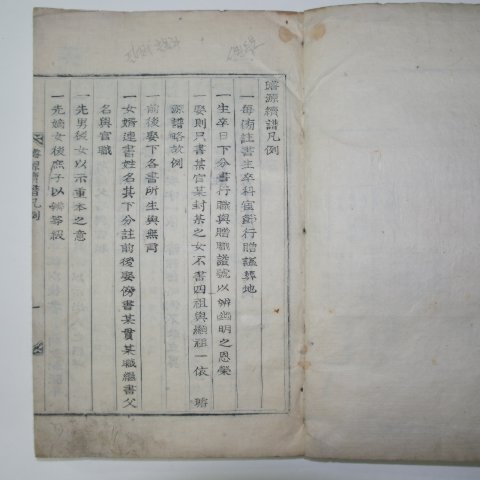 璿源續譜凡例
一每傍註書生卒科宦爵行贈諡葬地
一生卒日下分書行職與贈職諡號以辨幽明之恩榮
一娶則只書某官某封某之女不書四祖與顯祖一依 璿
源譜略故例
前後娶下各書所生與無育
一女婿連書姓名其下分註前後娶傍書某貫某職繼書父
名與官職
一先男後女以示重本之意
一先嫡女後庶子以辨等級
璿源續譜凡例
一